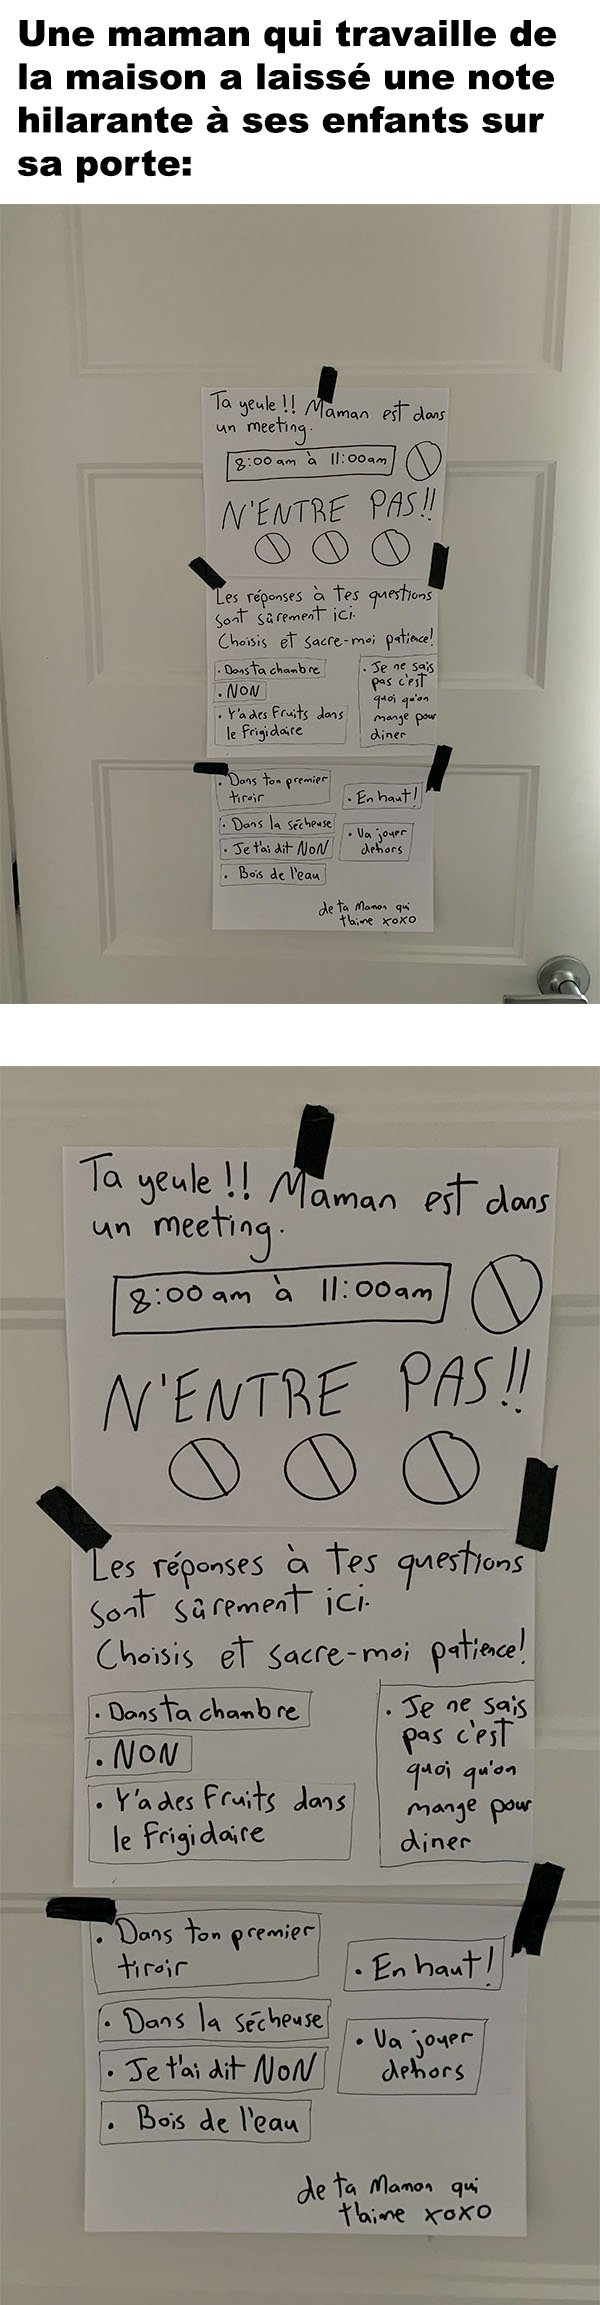 Une maman qui travaille de
la maison a laissé une note
hilarante à ses enfants sur
sa porte:
Ta yeule!! Maman est dans
un meeting.
8:00 am à 11:00am
N'ENTRE PAS!!
Les réponses à tes questions
sont sûrement ici.
Choisis et sacre-moi patience!
• Dans ta chambre
• NON
• Y'a des fruits dans
le frigidaire
• Je ne sais
pas c'est
quoi qu'on
mange pour
diner
• Dans ton premier
tiroir
• Dans la sécheuse
• Je t'ai dit NON
• Bois de l'eau
• En haut!
• Va jouer
dehors
de ta Maman qui
t'aime xoxo
Ta yeule!! Maman est dans
un meeting.
8:00 am à 11:00am
N'ENTRE PAS!!
Les réponses à tes questions
sont sûrement ici.
Choisis et sacre-moi patience!
• Dans ta chambre
• NON
• Y'a des fruits dans
le frigidaire
• Je ne sais
pas c'est
quoi qu'on
mange pour
diner
• Dans ton premier
tiroir
• Dans la sécheuse
• Je t'ai dit NON
• Bois de l'eau
• En haut!
• Va jouer
dehors
de ta Maman qui
t'aime xoxo